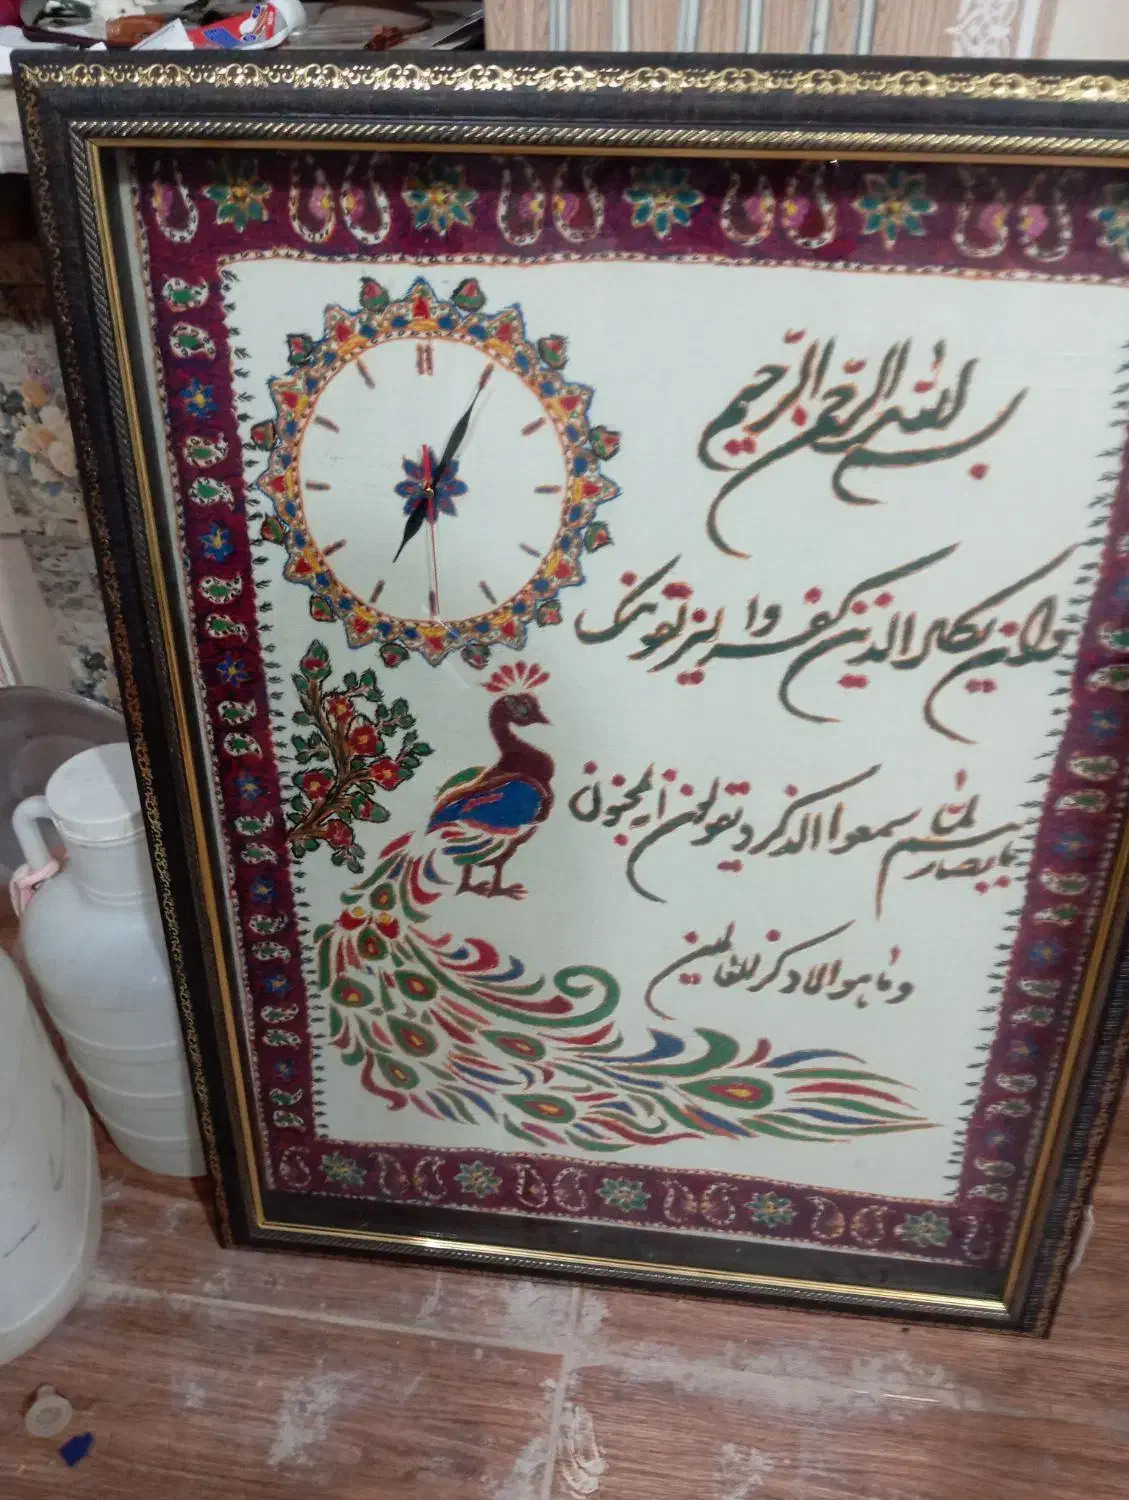 بسم الله الرحمن الرحیم
وان یکاد الذین کفروا لیزلقونک
بابصارهم لما سمعوا الذکر و یقولون انه لمجنون
وما هو الا ذکر للعالمین